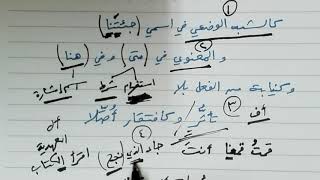 ①
كالشبه الوضعي في اسمي (جئتنا)
②
والمعنوي في (متى) وفي (هنا)
استفهام شرط اسم إشارة
وكنيابة عن الفعل بلا
③
أف تأثر وكافتقار أصلا
④
قمتُ قمعا أنتَ جاء الذي (نجح) اقرأ الكتاب
العهدية
ال